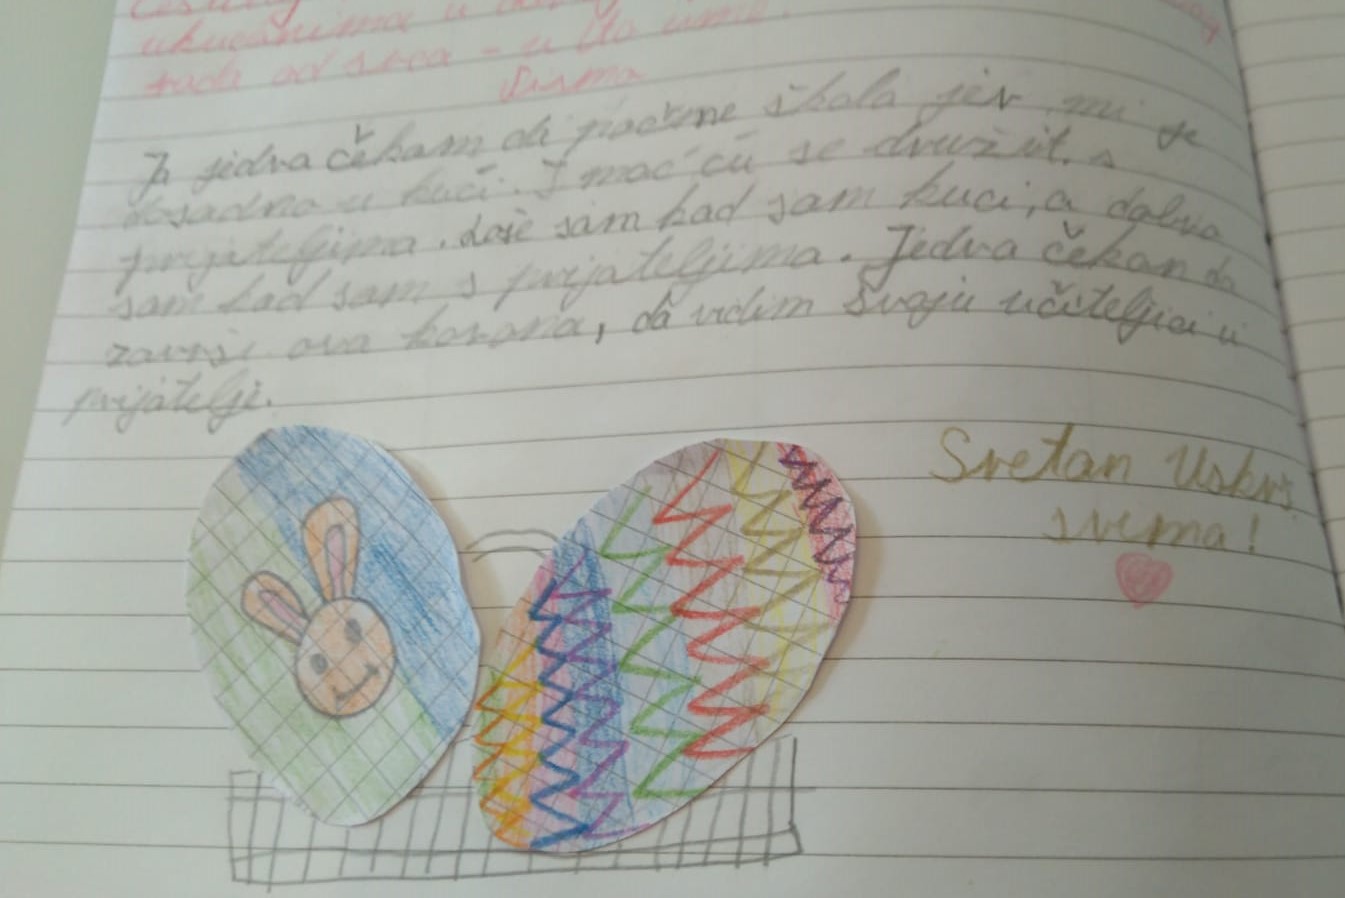 ukućanima u
rada od srca - u
pisma
Ja jedva čekam da počne škola jer mi je
dosadno u kući. I moć ću se družit s
prijateljima. Loše sam kad sam kuci, a dobro
sam kad sam s prijateljima. Jedva čekan da
završi ova korona, da vidim svoju učiteljicu i
prijatelje.
Sretan Uskrs
svima!